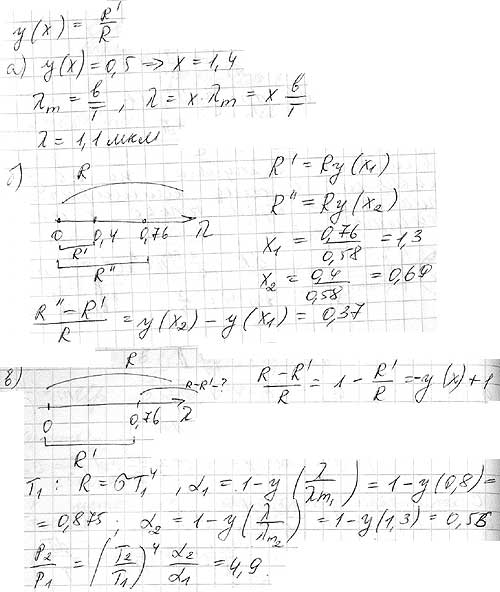 y(x) = R'/R
а) y(x) = 0,5 ⇒ x = 1,4
λm = в/T , λ = x·λm = x в/T
λ = 1,1 мкм
б) R
0 0,4 0,76 λ
R'
R''
R' = Ry(x1)
R'' = Ry(x2)
x1 = 0,76/0,58 = 1,3
x2 = 0,4/0,58 = 0,69
(R'' − R')/R = y(x2) − y(x1) = 0,37
в) R
R−R'−?
0 0,76 λ
R'
(R − R')/R = 1 − R'/R = −y(x) + 1
T1 : R = σT1⁴ , α1 = 1 − y(λ/λm1) = 1 − y(0,8) =
= 0,875 ; α2 = 1 − y(λ/λm2) = 1 − y(1,3) = 0,56
P2/P1 = (T2/T1)⁴ α2/α1 = 4,9.